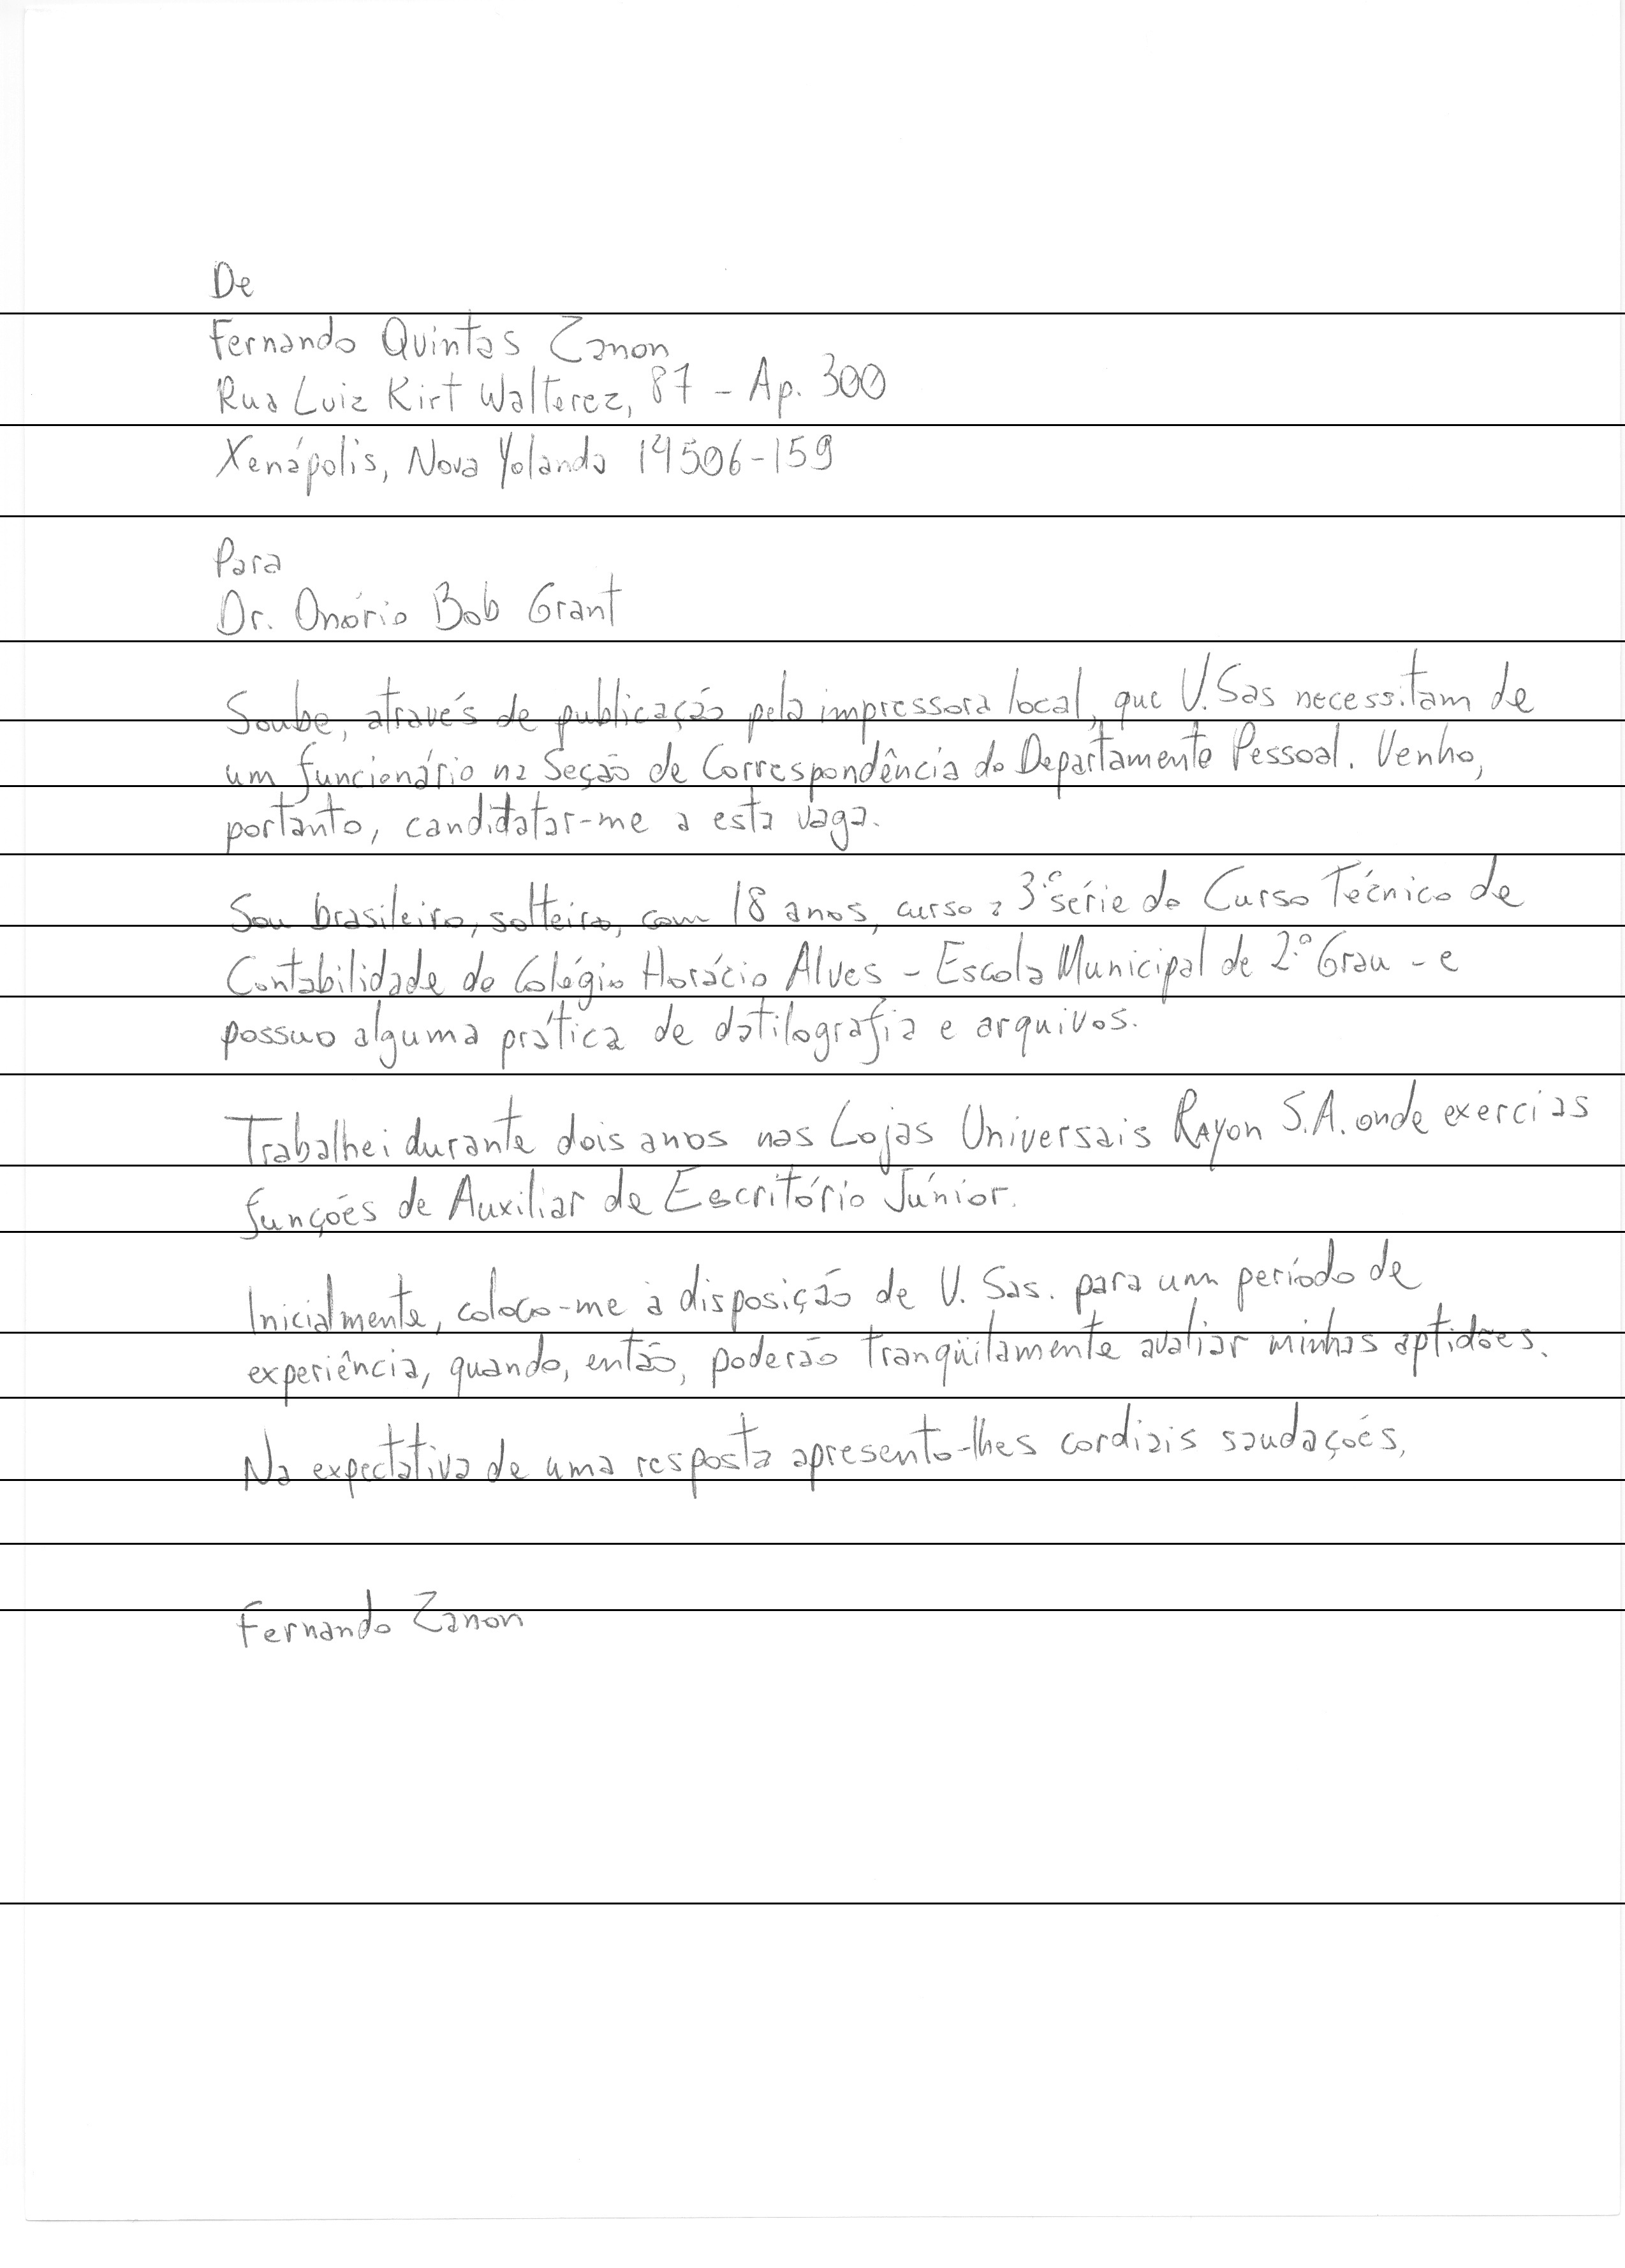 De
Fernando Quintas Zanon
Rua Luiz Kirt Walterez, 87 - Ap. 300
Xenápolis, Nova Yolanda 14506-159
Para
Dr. Onório Bob Grant
Soube, através de publicação pela impressora local, que V. Sas necessitam de
um funcionário na Seção de Correspondência do Departamento Pessoal. Venho,
portanto, candidatar-me a esta vaga.
Sou brasileiro, solteiro, com 18 anos, curso a 3ª série do Curso Técnico de
Contabilidade do Colégio Horácio Alves - Escola Municipal de 2º Grau - e
possuo alguma prática de datilografia e arquivos.
Trabalhei durante dois anos nas Lojas Universais Rayon S.A. onde exerci as
funções de Auxiliar de Escritório Júnior.
Inicialmente, coloco-me à disposição de V. Sas. para um período de
experiência, quando, então, poderão tranqüilamente avaliar minhas aptidões.
Na expectativa de uma resposta apresento-lhes cordiais saudações,
Fernando Zanon